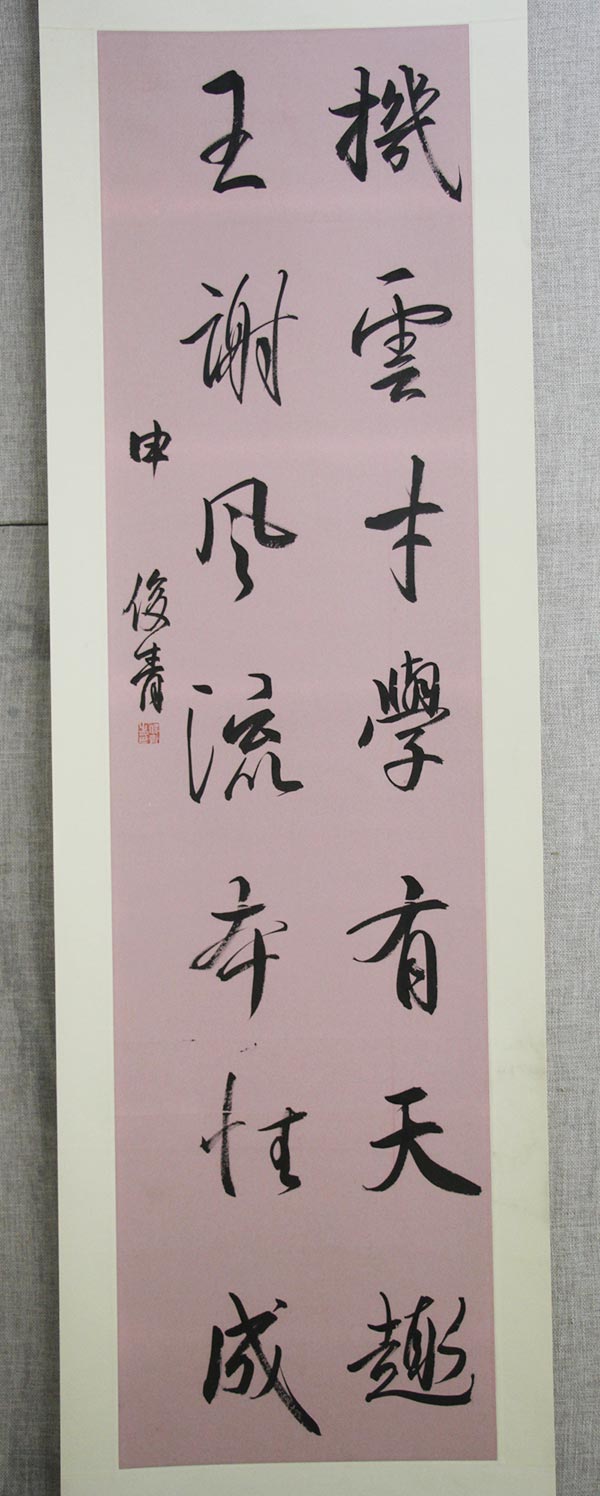 機雲才學有天趣
王謝风流本性成
申俊青